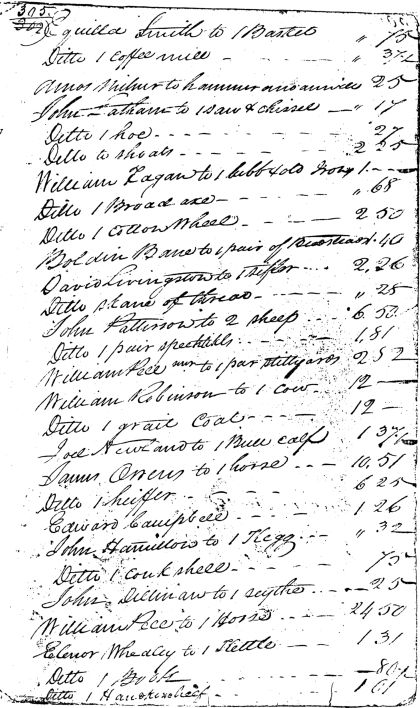 305
Equilld Smith to 1 Basket " 75
Ditto 1 Coffee mill " 37½
Amos Milner to hammer and anvill 25
John Latham to 1 saw & chissel " 17
Ditto 1 hoe 27
Ditto to shoats 2 25
William Fagan to 1 bibb & old Irons 1 —
Ditto 1 Broad axe " 68
Ditto 1 Cotton Wheel 2 50
Bolden Bane to 1 pair of 40
David Livingston to 1 2,26
Ditto skane of thread " 25
John Patterson to 2 sheep 6 50
Ditto 1 pair specktkls 1,81
William Pell to 1 par stillyards 2 52
William Robinson to 1 cow 12 —
Ditto 1 grait Coat 12 —
Joel Newland to 1 Bull calf 1 37½
James Owens to 1 horse 10,51
Ditto 1 heiffer 6 25
Edward Campbell 1 26
John Hamillow to 1 Kegg " 32
Ditto 1 conk shell 75
John Dillinaw to 1 scythe 25
William Pece to 1 Horse 24 50
Elenor Whealey to 1 Kettle 1 31
Ditto 1 80½
Ditto 1 Handkircheif 1 01